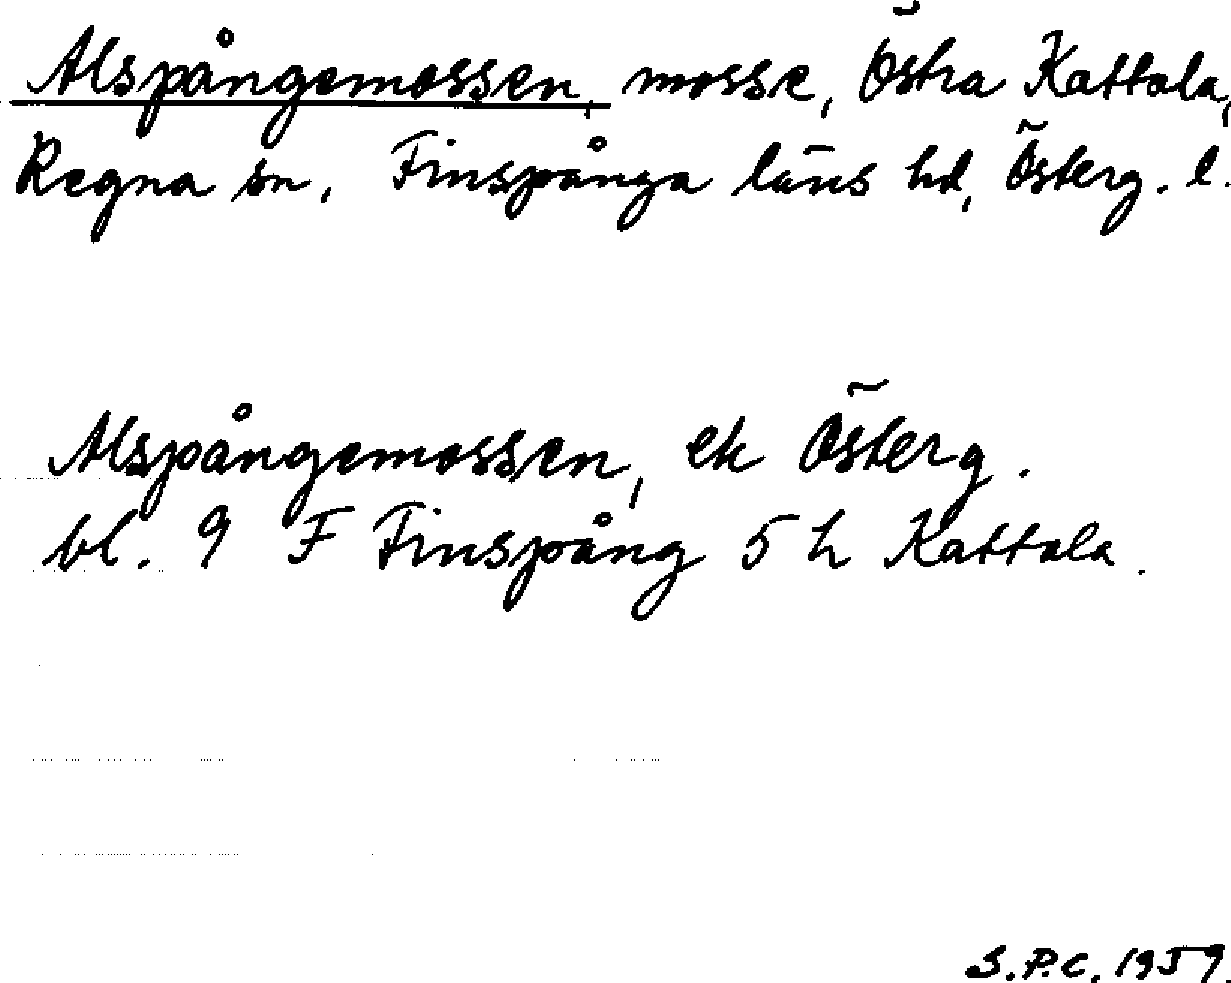 Alspångemossen, mosse, Östra Kattala,
Regna sn, Finspånga läns hd, Österg. l.
Alspångemossen, ek Österg.
bl. 9 F Finspång 5 h Kattala.
S.P.C. 1959.